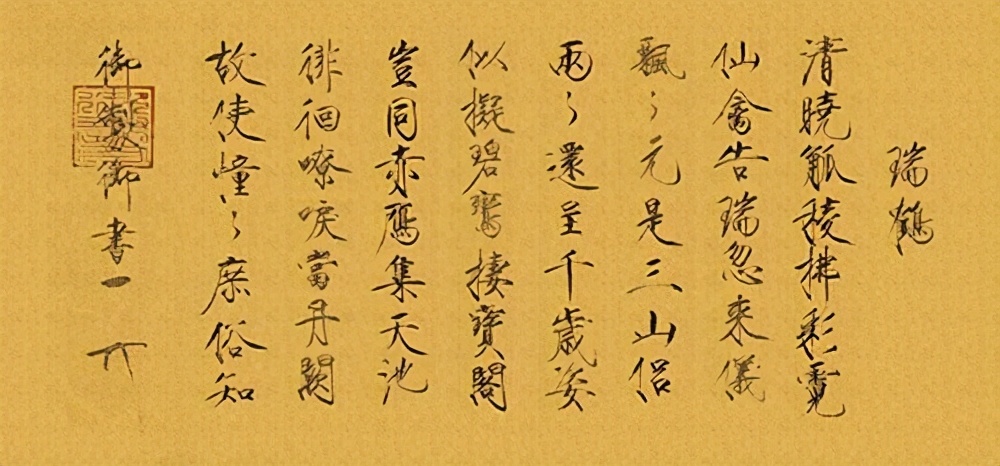 瑞鶴
清曉觚稜拂彩霓
仙禽告瑞忽來儀
飄々元是三山侶
兩々還呈千歲姿
似擬碧鸞棲寶閣
豈同赤鴈集天池
徘徊嘹唳當丹闕
故使憧々庶俗知
御製御書